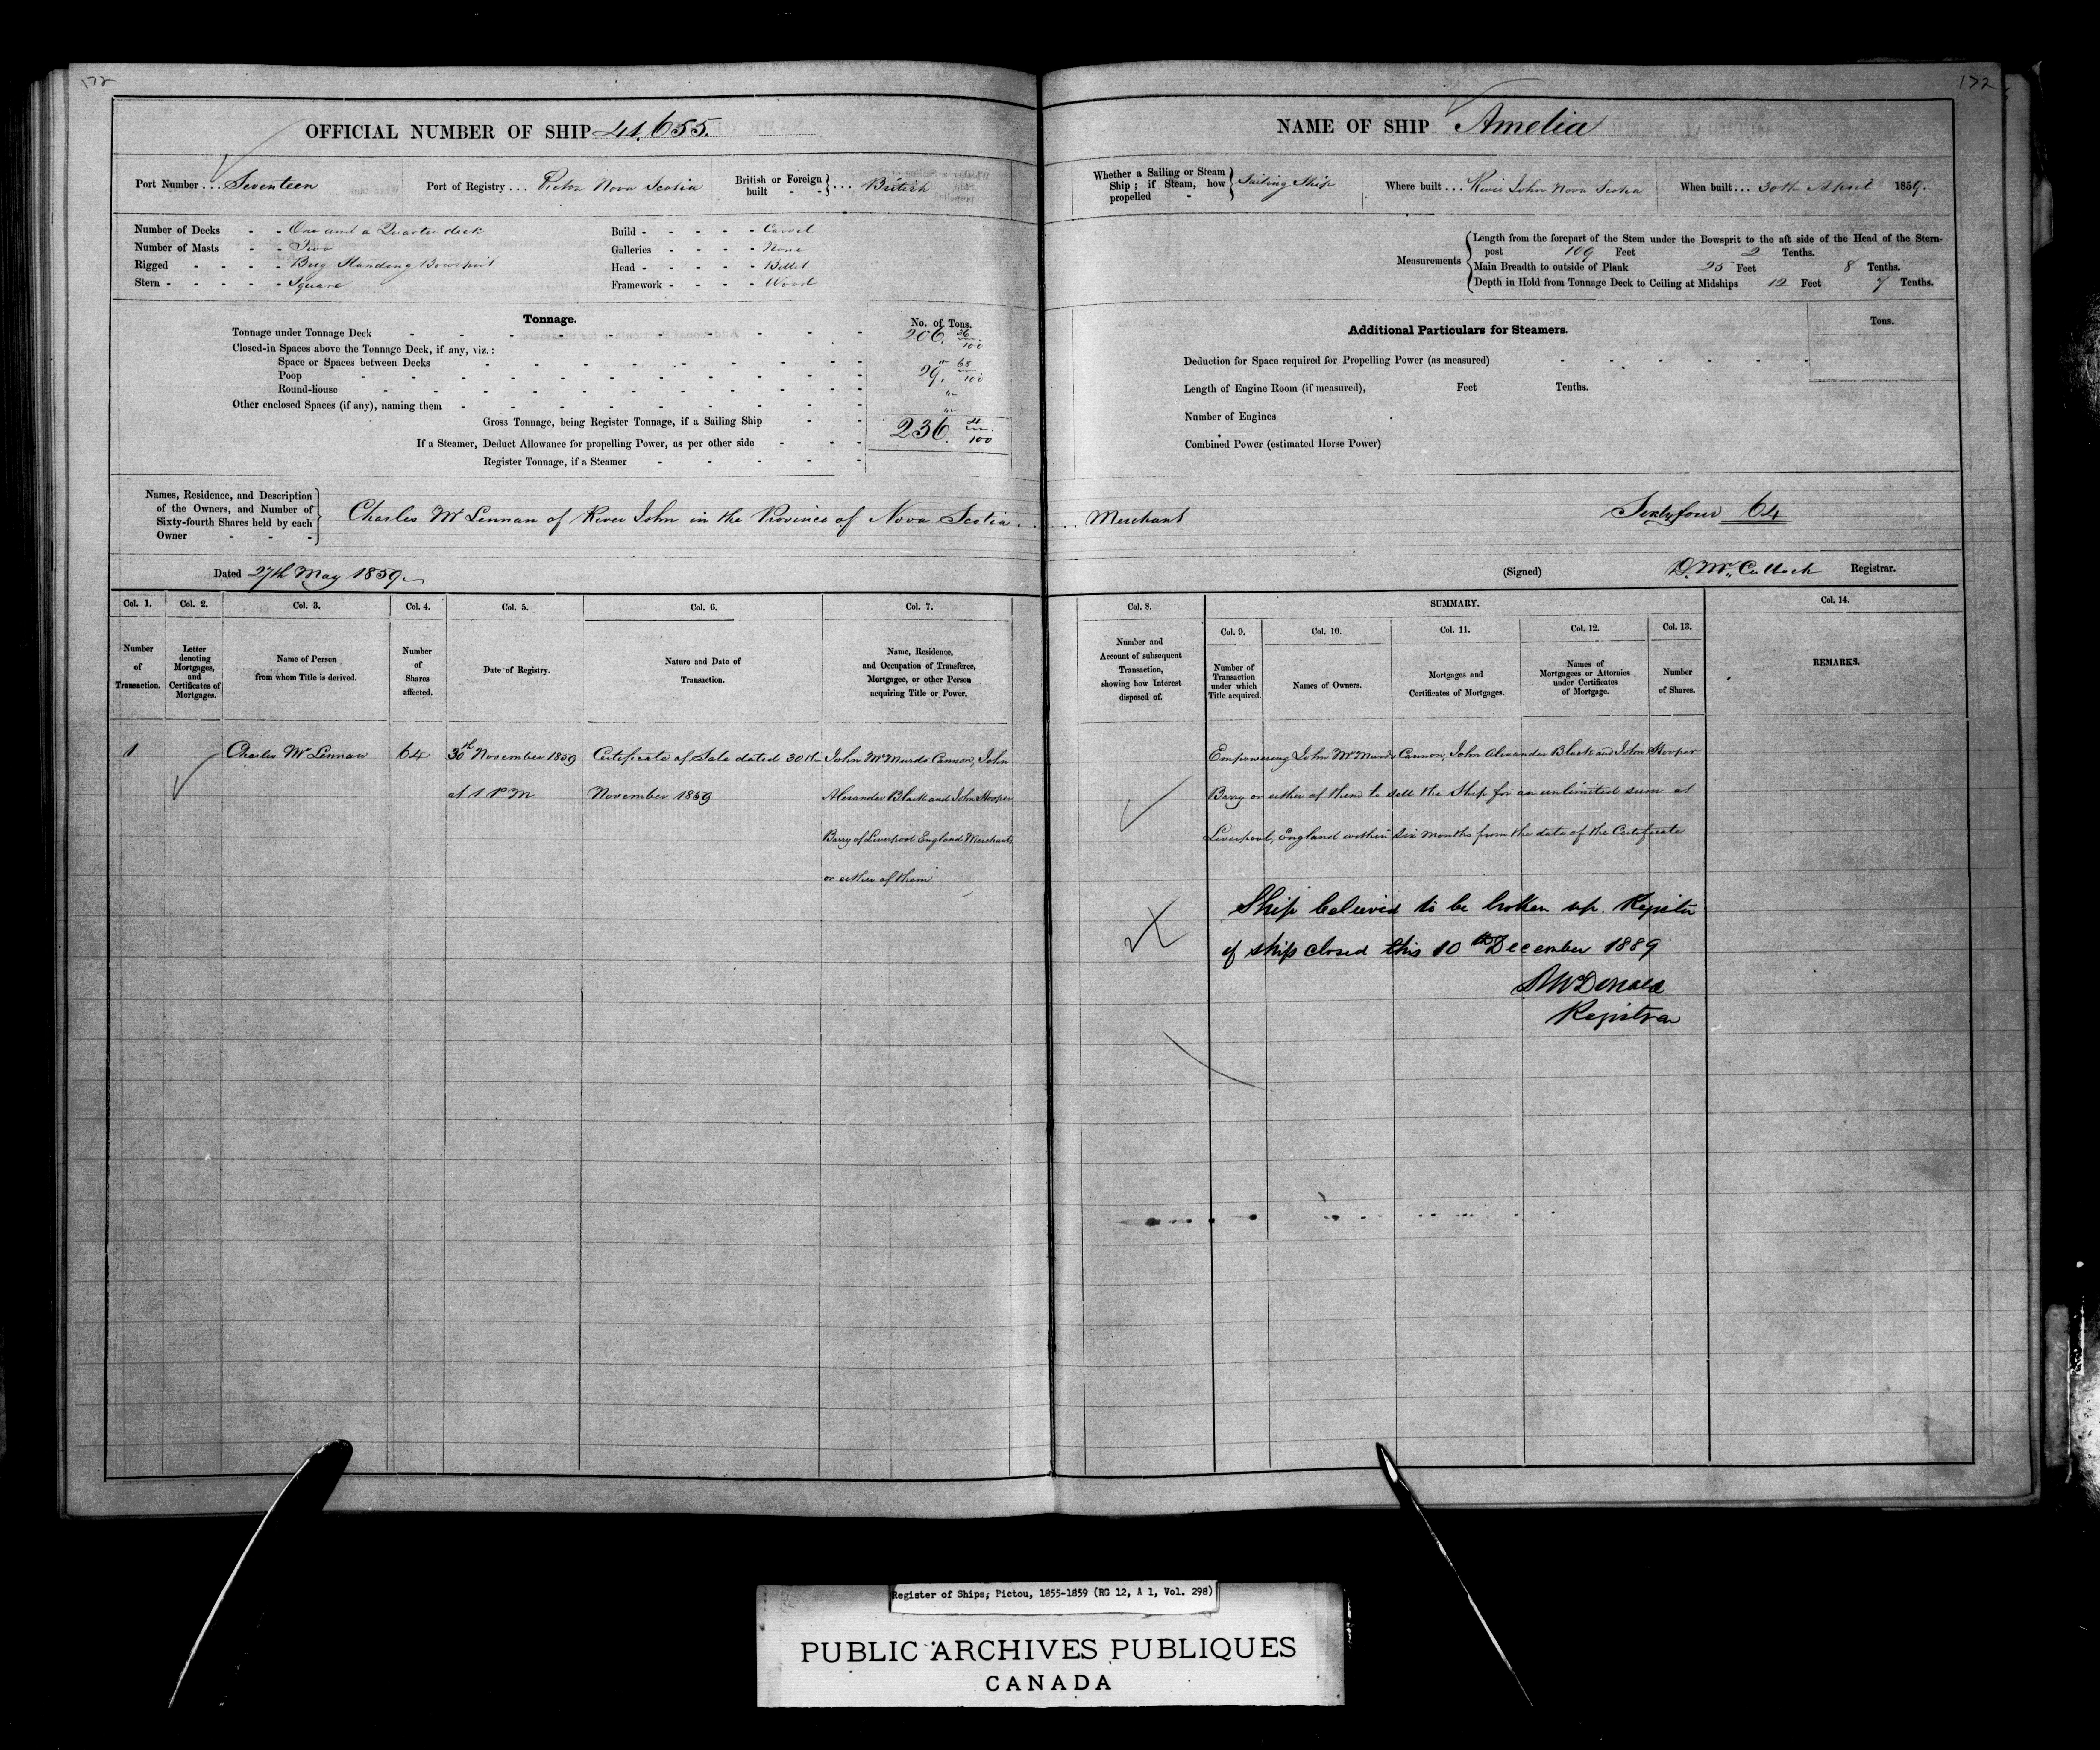 172
OFFICIAL NUMBER OF SHIP 41.655.
Port Number ... Seventeen
Port of Registry ... Pictou Nova Scotia
British or Foreign built - - } ... British
Number of Decks - - One and a Quarter deck
Number of Masts - - Two
Rigged - - - - Brig Standing Bowsprit
Stern - - - - - Square
Build - - - - - Carvel
Galleries - - - - None
Head - - - - - Billet
Framework - - - - Wood
Tonnage.
No. of Tons.
Tonnage under Tonnage Deck 206. 36/100
Closed-in Spaces above the Tonnage Deck, if any, viz.:
Space or Spaces between Decks "
Poop 29. 68/100
Round-house "
Other enclosed Spaces (if any), naming them "
Gross Tonnage, being Register Tonnage, if a Sailing Ship 236. 4/100
If a Steamer, Deduct Allowance for propelling Power, as per other side
Register Tonnage, if a Steamer
Names, Residence, and Description
of the Owners, and Number of
Sixty-fourth Shares held by each
Owner
Charles McLennan of River John in the Province of Nova Scotia
Dated 27th May 1859
Col. 1. Col. 2. Col. 3. Col. 4. Col. 5. Col. 6. Col. 7.
Number of Transaction.
Letter denoting Mortgages, and Certificates of Mortgages.
Name of Person from whom Title is derived.
Number of Shares affected.
Date of Registry.
Nature and Date of Transaction.
Name, Residence, and Occupation of Transferee, Mortgagee, or other Person acquiring Title or Power.
1 Charles McLennan 64 30th November 1859 Certificate of Sale dated 30th John McMurdo Cannon, John
at 1 PM November 1859 Alexander Black and John Hooper
Barry of Liverpool England Merchants
or either of them
172
NAME OF SHIP Amelia
Whether a Sailing or Steam Ship; if Steam, how propelled - } Sailing Ship
Where built ... River John Nova Scotia
When built ... 30th April 1859.
Measurements
Length from the forepart of the Stem under the Bowsprit to the aft side of the Head of the Stern-
post 109 Feet 2 Tenths.
Main Breadth to outside of Plank 25 Feet 8 Tenths.
Depth in Hold from Tonnage Deck to Ceiling at Midships 12 Feet 7 Tenths.
Additional Particulars for Steamers.
Tons.
Deduction for Space required for Propelling Power (as measured)
Length of Engine Room (if measured), Feet Tenths.
Number of Engines
Combined Power (estimated Horse Power)
Merchant Sixty four 64
(Signed) D. McCulloch Registrar.
Col. 8. SUMMARY. Col. 14.
Col. 9. Col. 10. Col. 11. Col. 12. Col. 13.
Number and Account of subsequent Transaction, showing how Interest disposed of.
Number of Transaction under which Title acquired.
Names of Owners.
Mortgages and Certificates of Mortgages.
Names of Mortgagees or Attornies under Certificates of Mortgage.
Number of Shares.
REMARKS.
Empowering John McMurdo Cannon, John Alexander Black and John Hooper
Barry or either of them to sell the Ship for an unlimited sum at
Liverpool, England within six months from the date of the Certificate
Ship believed to be broken up. Register
of ship closed this 10th December 1889
McDonald
Registrar
Register of Ships, Pictou, 1855-1859 (RG 12, A 1, Vol. 298)
PUBLIC ARCHIVES PUBLIQUES
CANADA